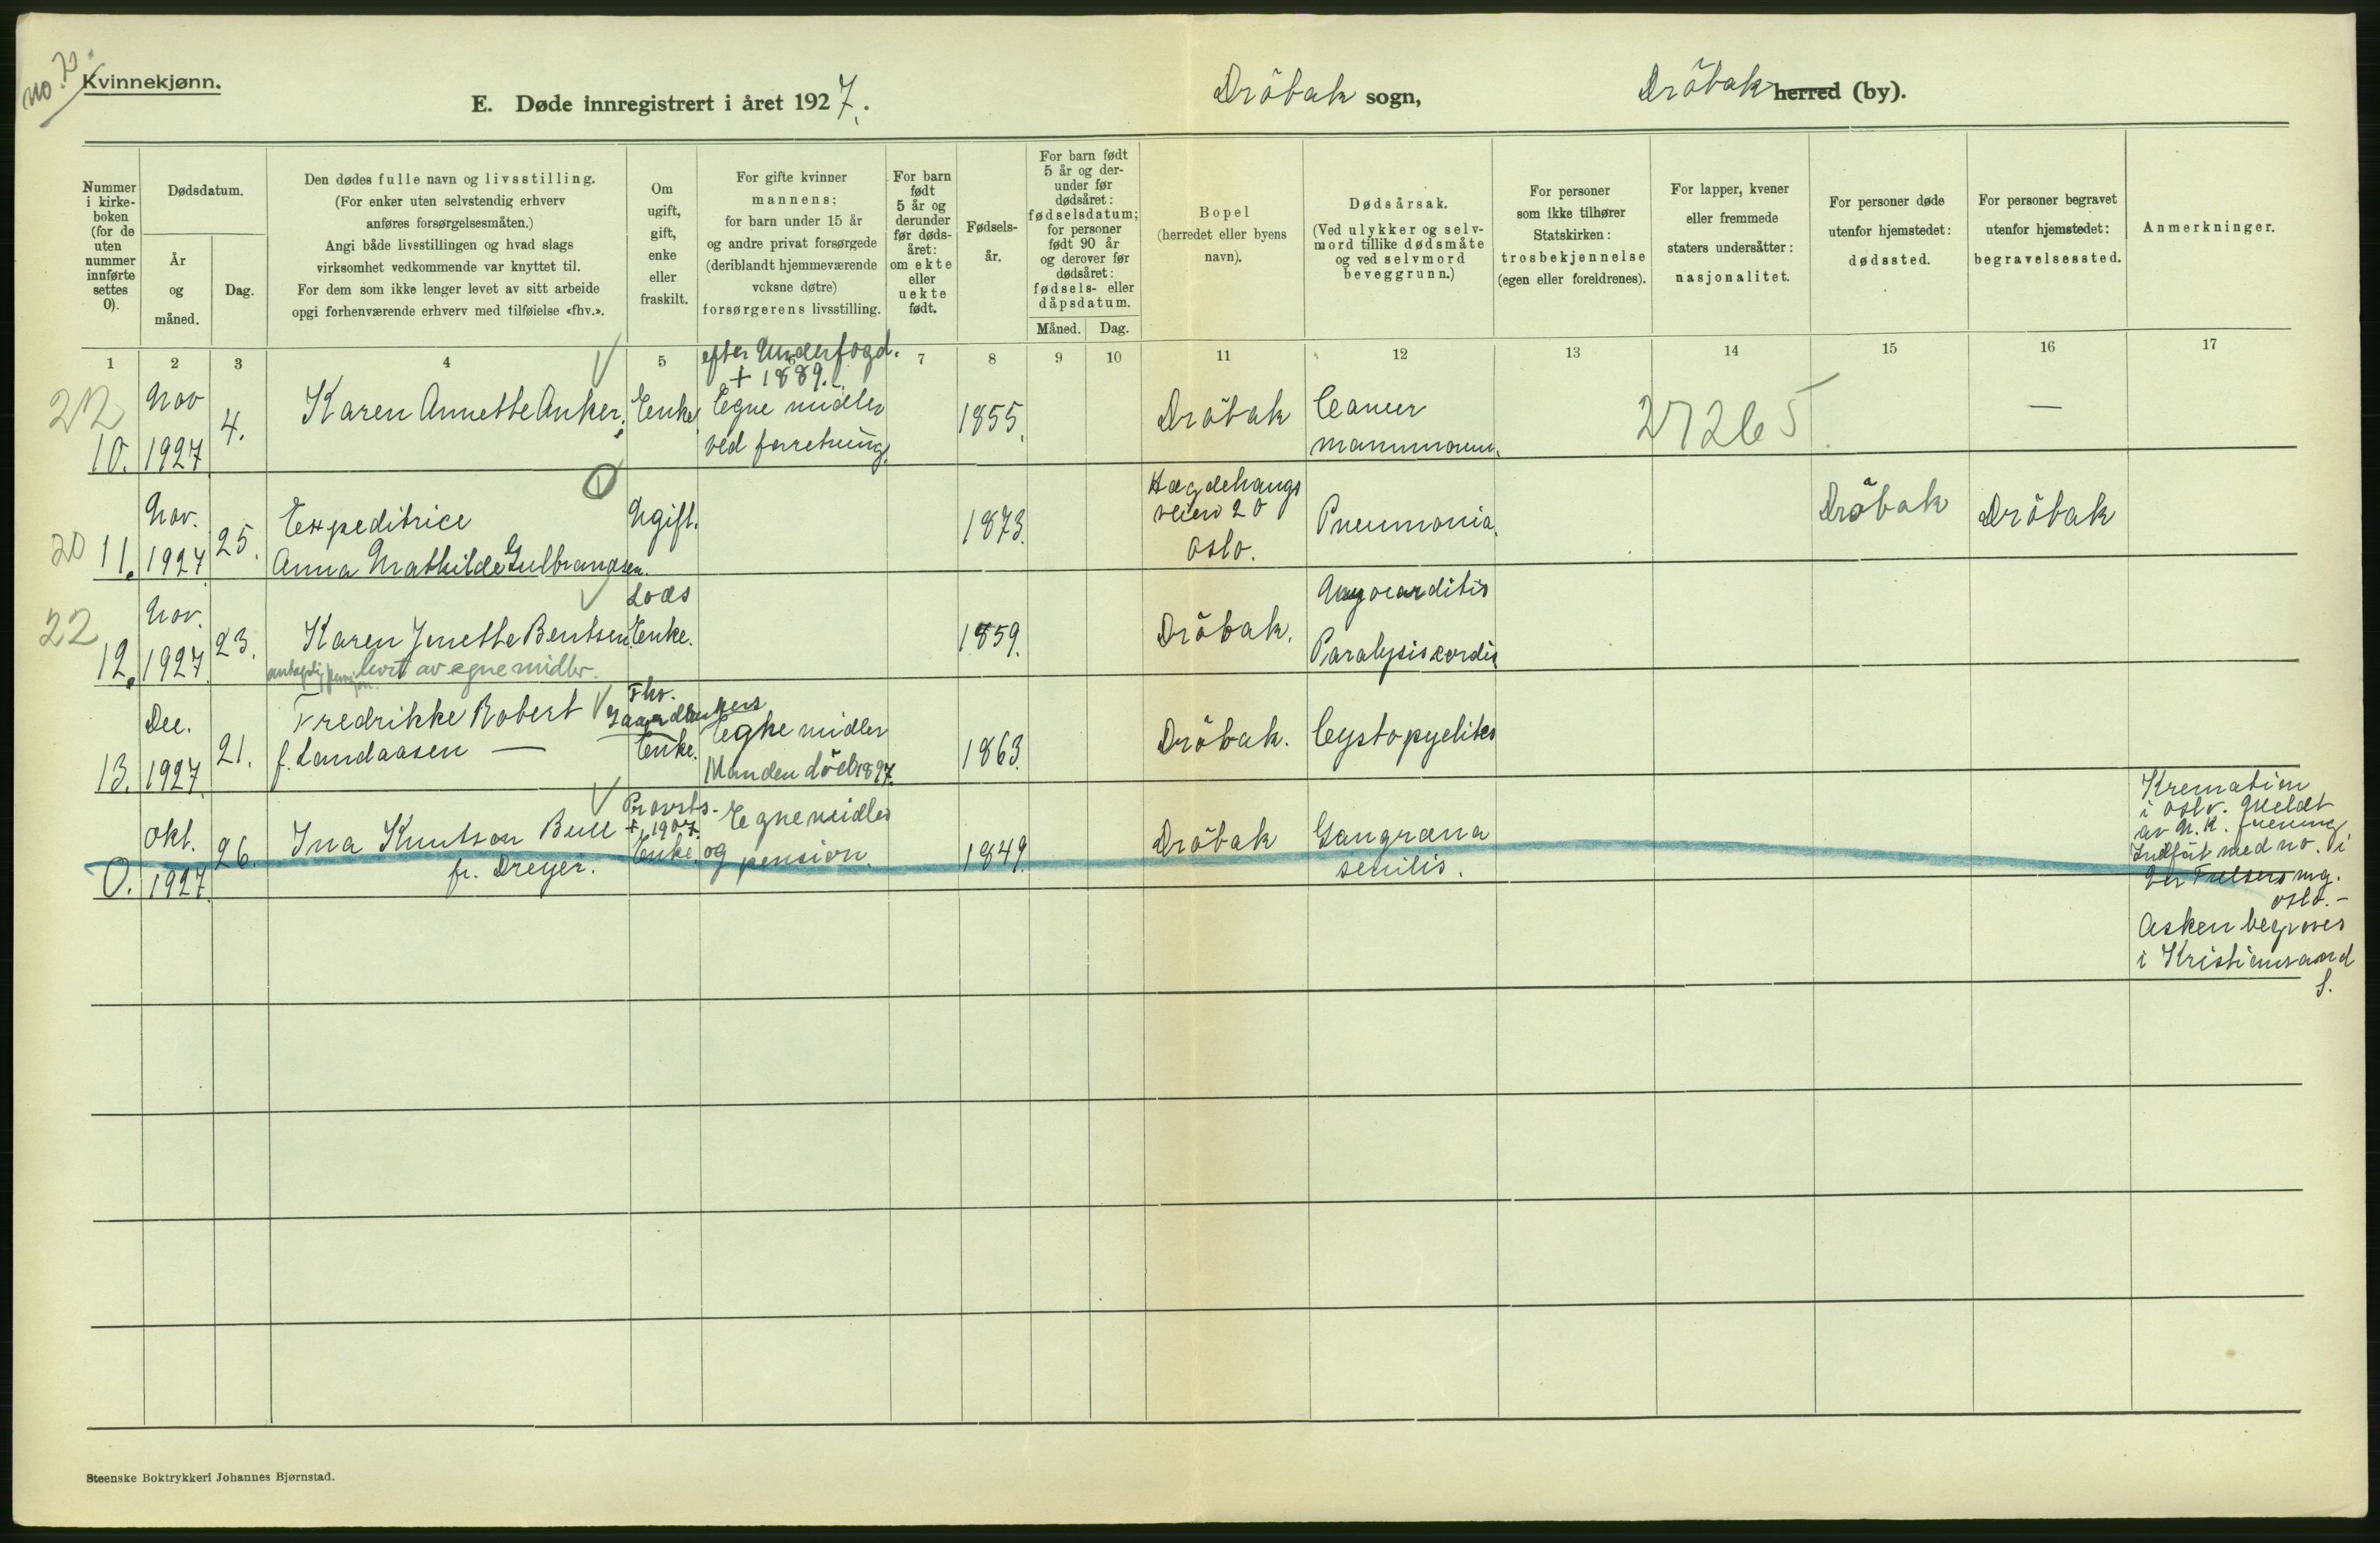 no.
Kvinnekjønn.
E. Døde innregistrert i året 1927.
Dröbak sogn,
Dröbak herred (by).
Nummer i kirkeboken (for de uten nummer innførte settes 0).
Dødsdatum.
År og måned.
Dag.
Den dødes fulle navn og livsstilling.
(For enker uten selvstendig erhverv
anføres forsørgelsesmåten.)
Angi både livsstillingen og hvad slags
virksomhet vedkommende var knyttet til.
For dem som ikke lenger levet av sitt arbeide
opgi forhenværende erhverv med tilføielse «fhv.».
Om ugift, gift, enke eller fraskilt.
For gifte kvinner
mannens;
for barn under 15 år
og andre privat forsørgede
(deriblandt hjemmeværende
voksne døtre)
forsørgerens livsstilling.
For barn født 5 år og derunder før dødsåret: om ekte eller uekte født.
Fødselsår.
For barn født 5 år og derunder før dødsåret: fødselsdatum; for personer født 90 år og derover før dødsåret: fødsels- eller dåpsdatum.
Måned. Dag.
Bopel
(herredet eller byens
navn).
Dødsårsak.
(Ved ulykker og selvmord tillike dødsmåte og ved selvmord beveggrunn.)
For personer
som ikke tilhører
Statskirken:
trosbekjennelse
(egen eller foreldrenes).
For lapper, kvener
eller fremmede
staters undersåtter:
nasjonalitet.
For personer døde
utenfor hjemstedet:
dødssted.
For personer begravet
utenfor hjemstedet:
begravelsessted.
Anmerkninger.
1 2 3 4 5 6 7 8 9 10 11 12 13 14 15 16 17
22
10.
Nov
1927
4.
Karen Annette Anker,
Enke
efter Underfogd.
+ 1889.
Egne midler
ved forretning.
1855.
Dröbak
Cancer
mammarum.
27265
—
20
11.
Nov.
1927.
25.
Expeditrice
Anna Mathilde Gulbrandsen.
Ugift.
1873.
Hægdehaugs
veien 20
Oslo.
Pneumonia.
Dröbak
Dröbak
22
12.
Nov.
1927.
23.
Karen Jenette Bentsen.
levet av egne midler.
Lods
Enke.
1859.
Dröbak.
Myocarditis
Paralysis cordis
13.
Dec.
1927.
21.
Fredrikke Robert
f. Landaasen —
Fhv.
Enke.
Egne midler
Manden död 1897.
1863.
Dröbak.
Cystopyelites
0.
Okt.
1927.
26.
Ina Knutson Bull
f. Dreyer.
Provsts-
+ 1907.
Enke.
Egne midler
og pension.
1849.
Dröbak
Gangræna
senilis.
Kremation
i Oslo. Meldt
av
Indfört med no. 0 i
Vår Frelsers mg.
Oslo.-
Asken begraves
i Kristiansand
S.
Steenske Boktrykkeri Johannes Bjørnstad.